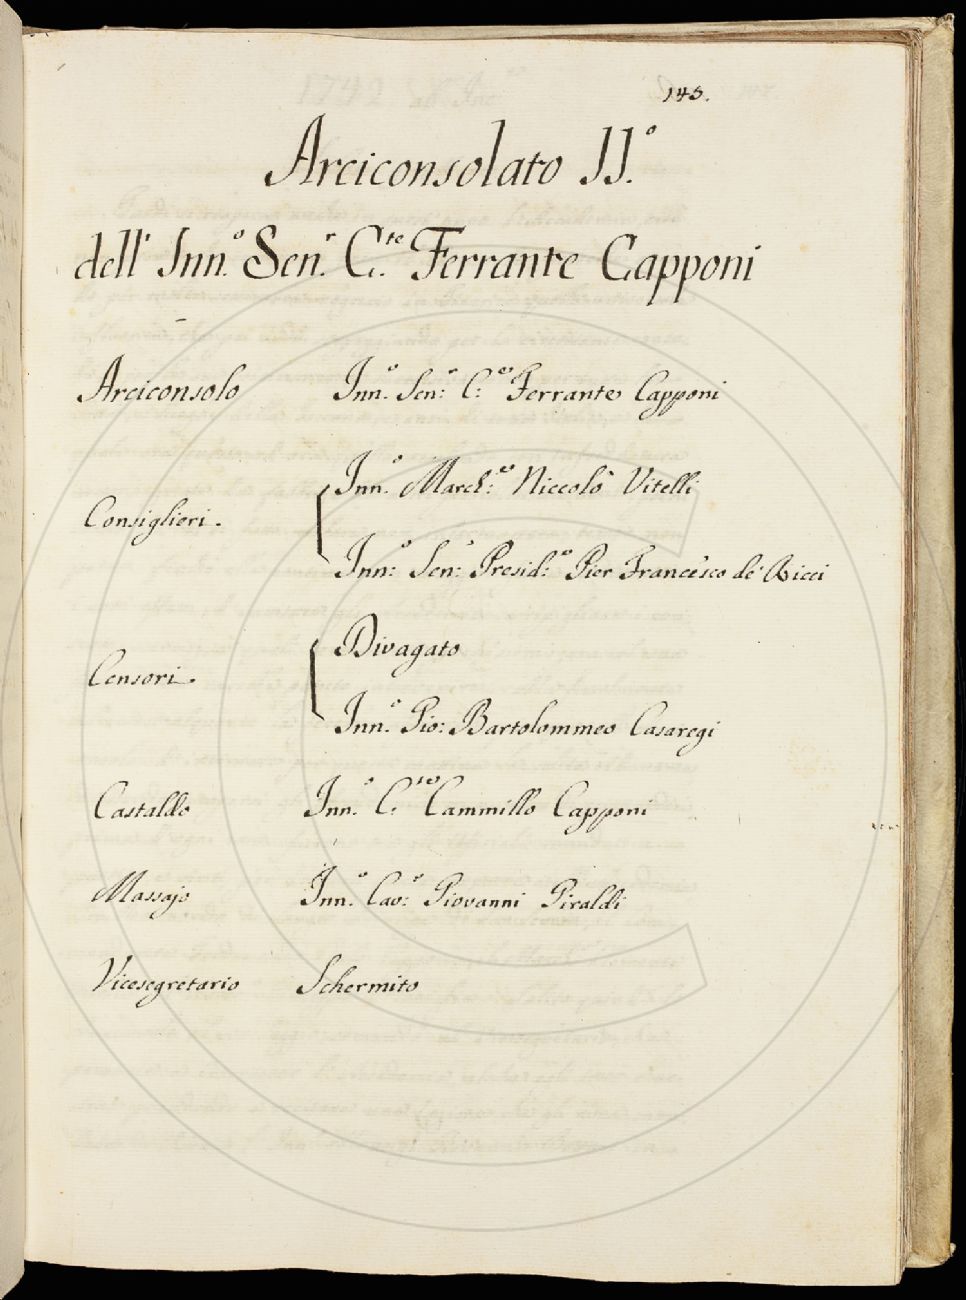 145.
Arciconsolato II.º
dell' Inn.º Sen.r C.te Ferrante Capponi
Arciconsolo Inn.º Sen.r C.te Ferrante Capponi
Inn.º March.e Niccolò Vitelli
Consiglieri.
Inn.º Sen.r Presid.e Pier Francesco de' Ricci
Divagato
Censori.
Inn.º Gio: Bartolommeo Casaregi
Castaldo Inn.º C.te Cammillo Capponi
Massajo Inn.º Cav.e Giovanni Giraldi
Vicesegretario Schermito